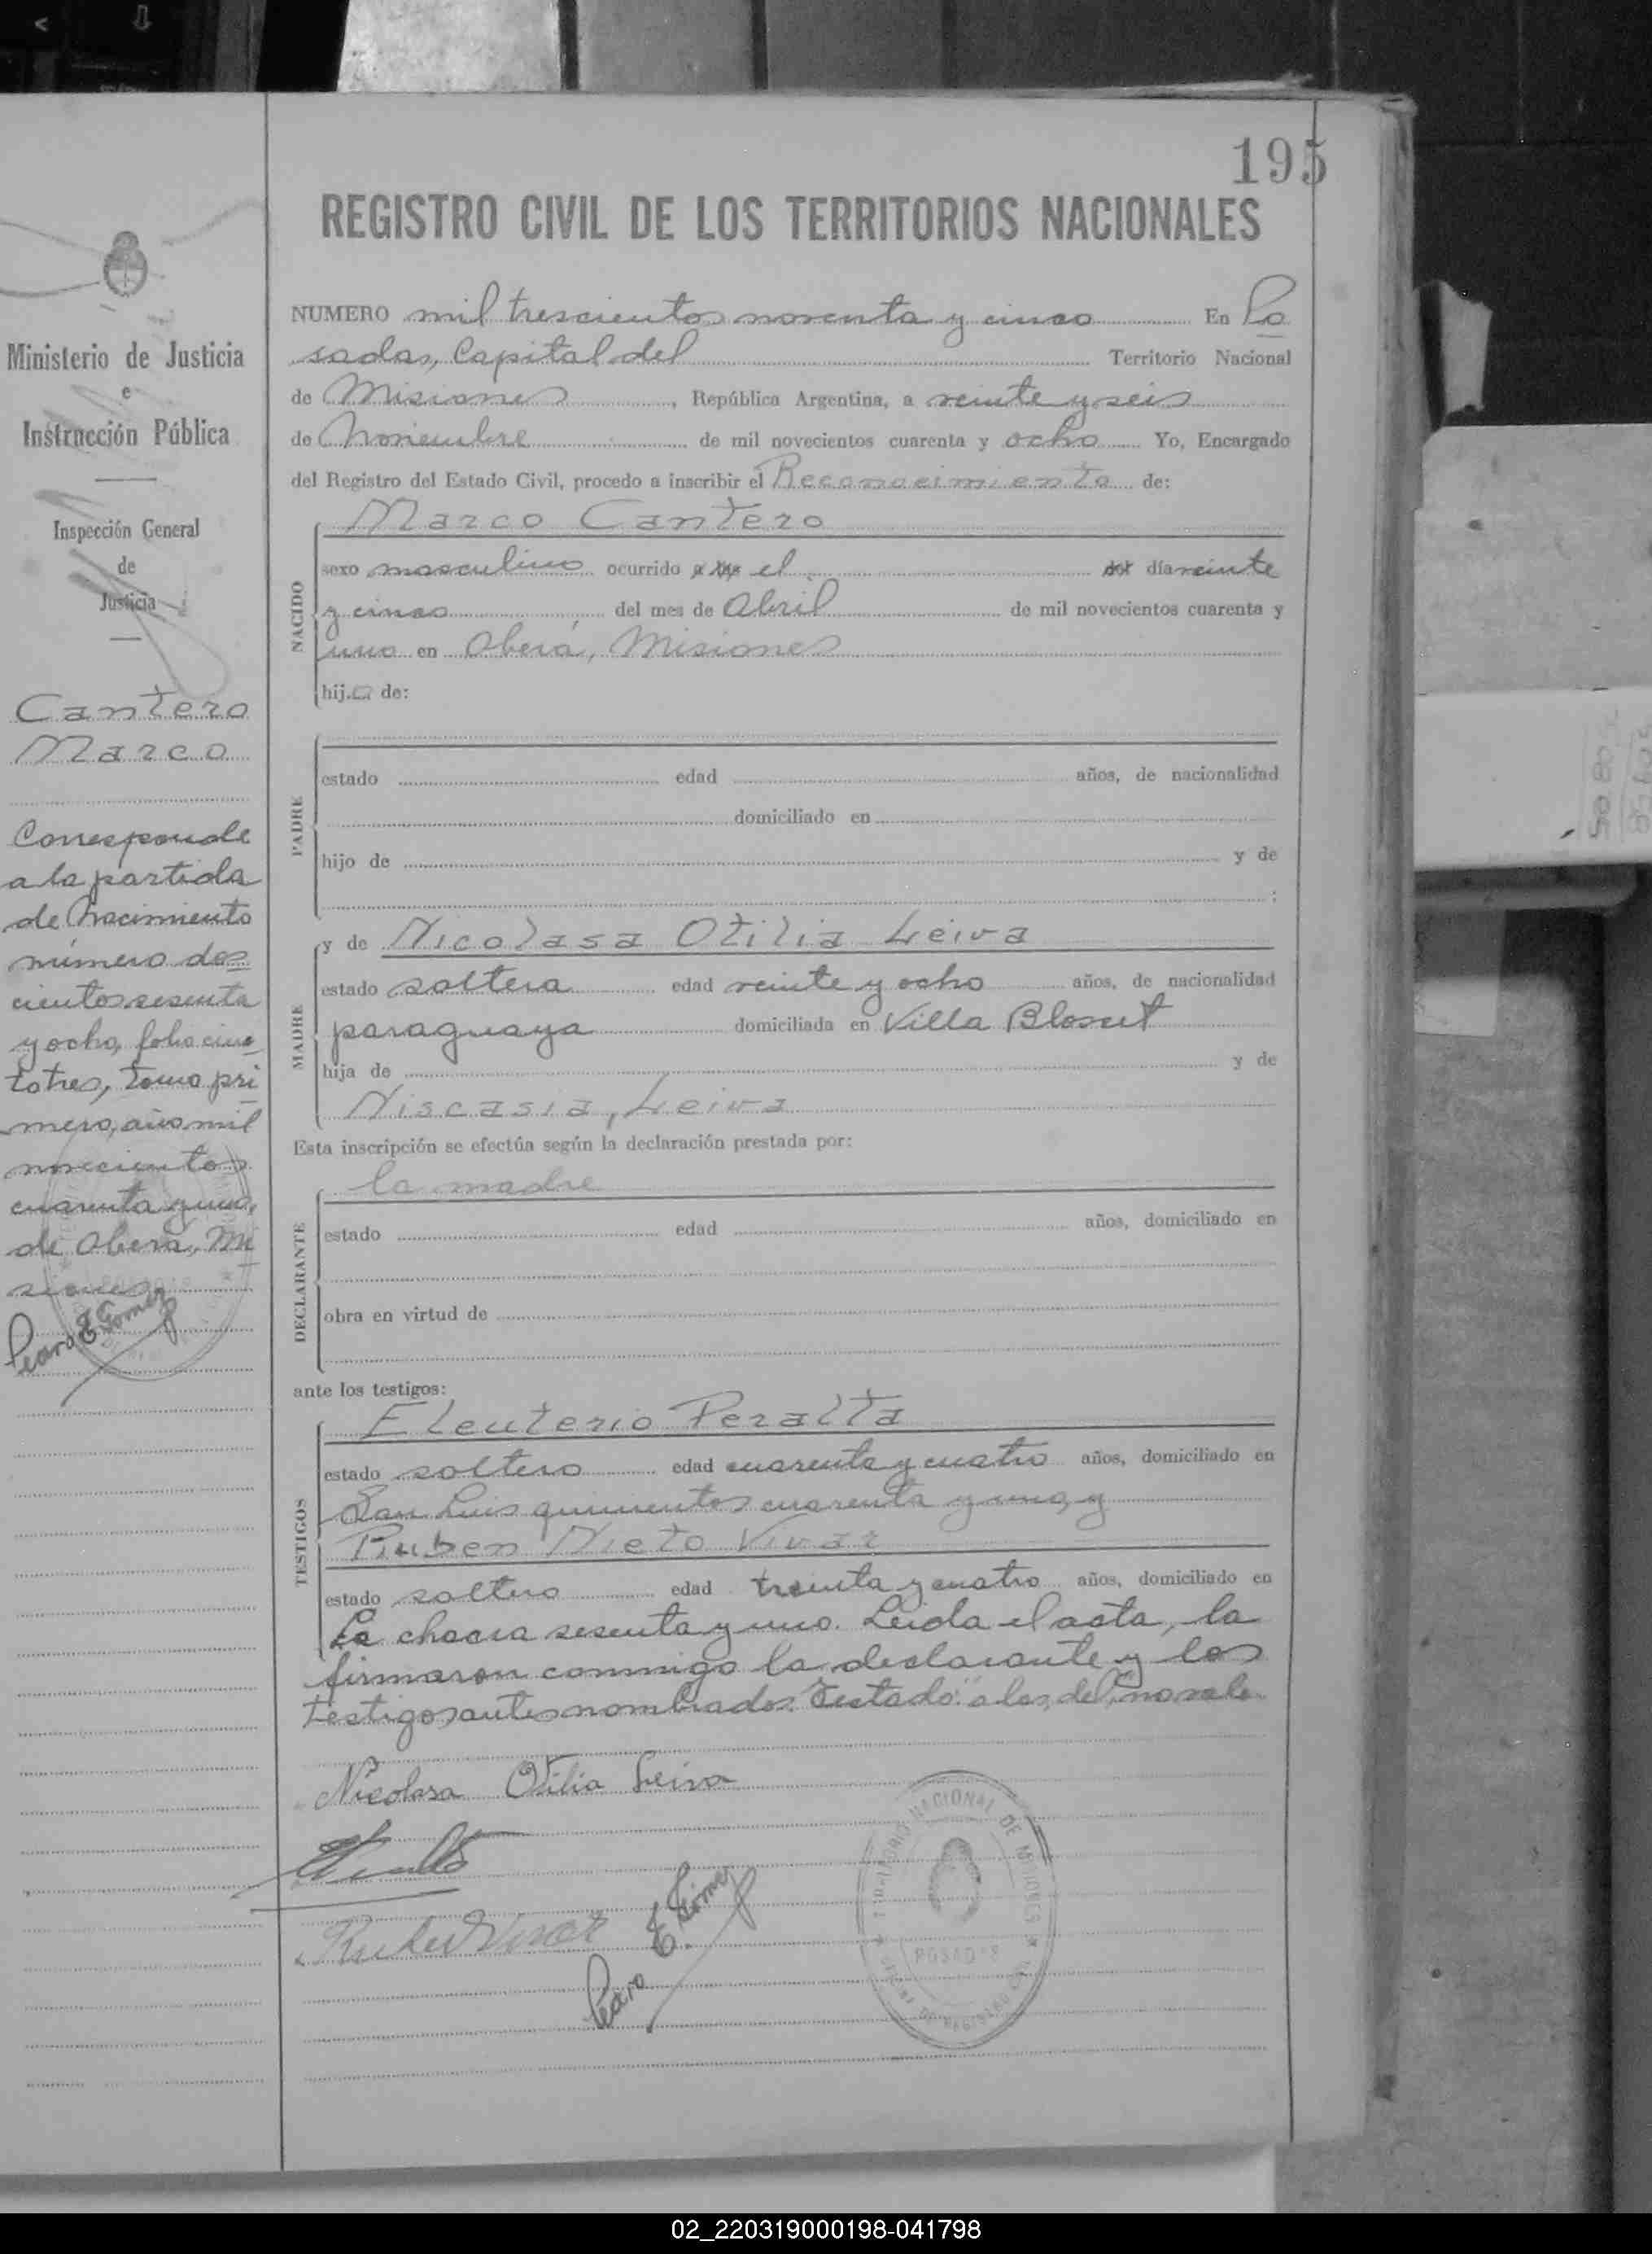 195
REGISTRO CIVIL DE LOS TERRITORIOS NACIONALES
Ministerio de Justicia
e
Instrucción Pública
Inspección General
de
Justicia
Cantero
Marco
Corresponde
a la partida
de Nacimiento
número dos
cientos sesenta
y ocho, folio cien
to tres, tomo pri
mero, año mil
novecientos
cuarenta y uno,
de Oberá, Mi
siones
Pedro E. Gomez
NUMERO mil trescientos noventa y cinco En Po
sadas, Capital del Territorio Nacional
de Misiones, República Argentina, a veinte y seis
de Noviembre de mil novecientos cuarenta y ocho Yo, Encargado
del Registro del Estado Civil, procedo a inscribir el Reconocimiento de:
Marco Cantero
NACIDO
sexo masculino ocurrido a las el del día veinte
y cinco del mes de Abril de mil novecientos cuarenta y
uno en Oberá, Misiones
hijo de:
PADRE
estado edad años, de nacionalidad
domiciliado en
hijo de y de
;
MADRE
y de Nicolasa Otilia Leiva
estado soltera edad veinte y ocho años, de nacionalidad
paraguaya domiciliada en Villa Blosset
hija de y de
Niscasia, Leiva
Esta inscripción se efectúa según la declaración prestada por:
la madre
DECLARANTE
estado edad años, domiciliado en
obra en virtud de
ante los testigos:
TESTIGOS
Eleuterio Peralta
estado soltero edad cuarenta y cuatro años, domiciliado en
San Luis quinientos cuarenta y uno, y
Ruben Nieto Vivar
estado soltero edad treinta y cuatro años, domiciliado en
La chacra sesenta y uno. Leida el acta, la
firmaron conmigo la declarante y los
testigos antes nombrados. Testado: "a las, del", no vale.
Nicolasa Otilia Leiva
Pedro E. Gómez
TERRITORIO NACIONAL DE MISIONES
POSADAS
02_220319000198-041798